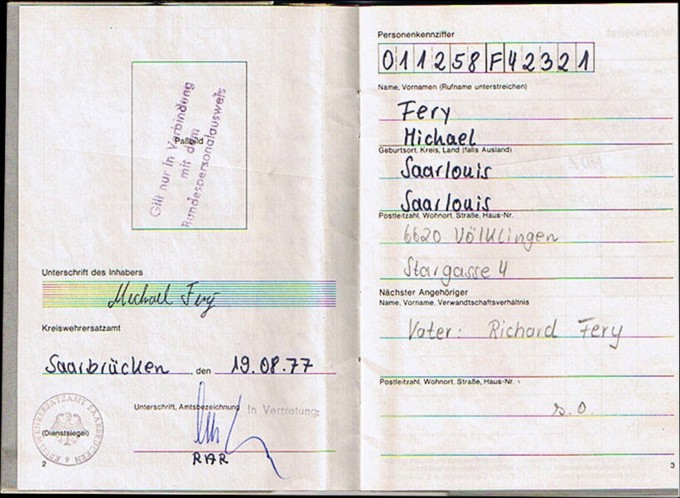 Gilt nur in Verbindung
mit dem
Bundespersonalausweis
Paßbild
Unterschrift des Inhabers
Michael Fery
Kreiswehrersatzamt
Saarbrücken den 19.08.77
Unterschrift, Amtsbezeichnung In Vertretung:
(Dienstsiegel)
RAR
KREISWEHRERSATZAMT SAARBRÜCKEN
2
Personenkennziffer
011258F42321
Name, Vornamen (Rufname unterstreichen)
Fery
Michael
Geburtsort, Kreis, Land (falls Ausland)
Saarlouis
Saarlouis
Postleitzahl, Wohnort, Straße, Haus-Nr.
6620 Völklingen
Stargasse 4
Nächster Angehöriger
Name, Vorname, Verwandtschaftsverhältnis
Vater: Richard Fery
Postleitzahl, Wohnort, Straße, Haus-Nr.
s.o.
3